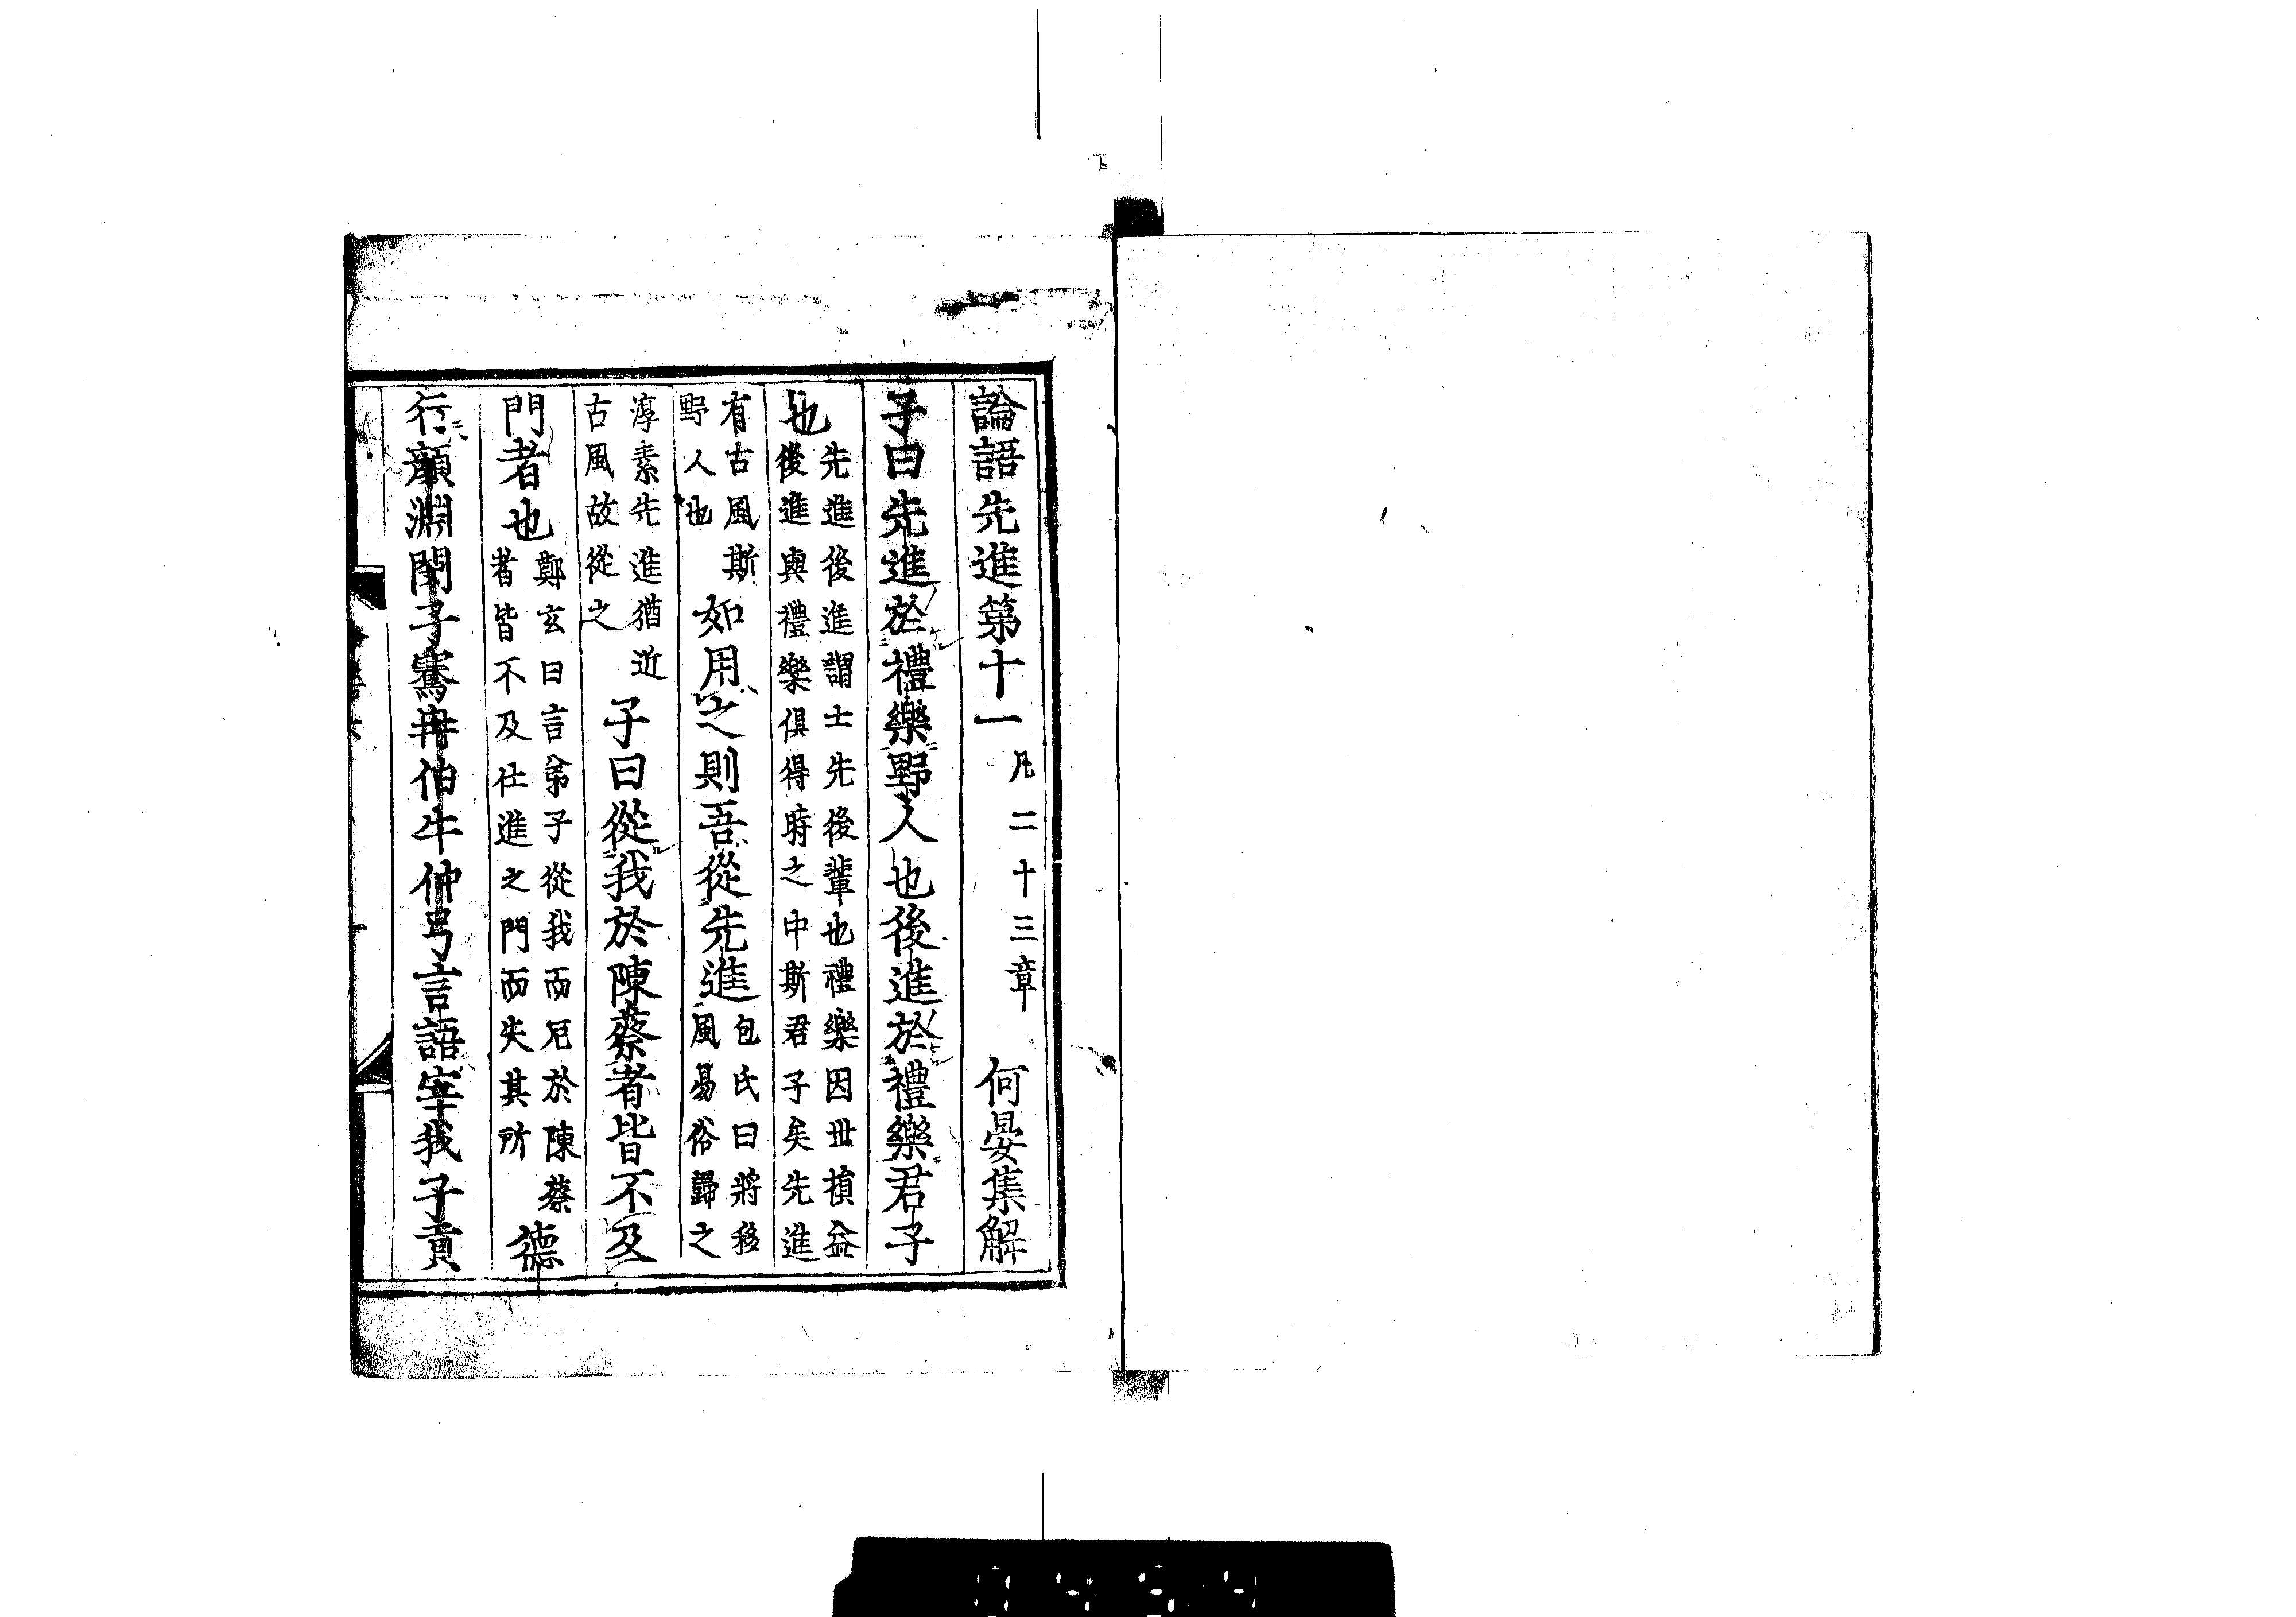 論語先進第十一凡二十三章 何晏集解
子曰先進於禮樂野人也後進於禮樂君子
也先進後進謂士先後輩也禮樂因世損益後進與禮樂俱得時之中斯君子矣先進
有古風斯野人也如用之則吾從先進包氏曰將移風易俗歸之
淳素先進猶近古風故從之子曰從我於陳蔡者皆不及
門者也鄭玄曰言弟子從我而厄於陳蔡者皆不及仕進之門而失其所德
行顏淵閔子騫冉伯牛仲弓言語宰我子貢